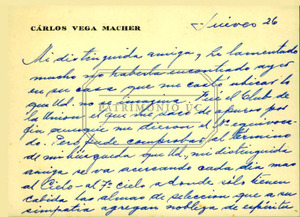 CÁRLOS VEGA MACHER
Jueves 26
Mi distinguida amiga, he lamentado
mucho no haberla encontrado ayer
en su casa que me costó ubicar lo
que Ud. no Fué el Club de
la Union el que me sacó de apuros por
que me dieron el Nº
Pero pude comprobar al término
de mi búsqueda que Ud., mi distinguida
amiga se va acercando cada día mas
al Cielo - al 7º cielo adonde sólo tienen
cabida las almas de seleccion que a su
simpatía agregan nobleza de espíritu
PATRIMONIO UC